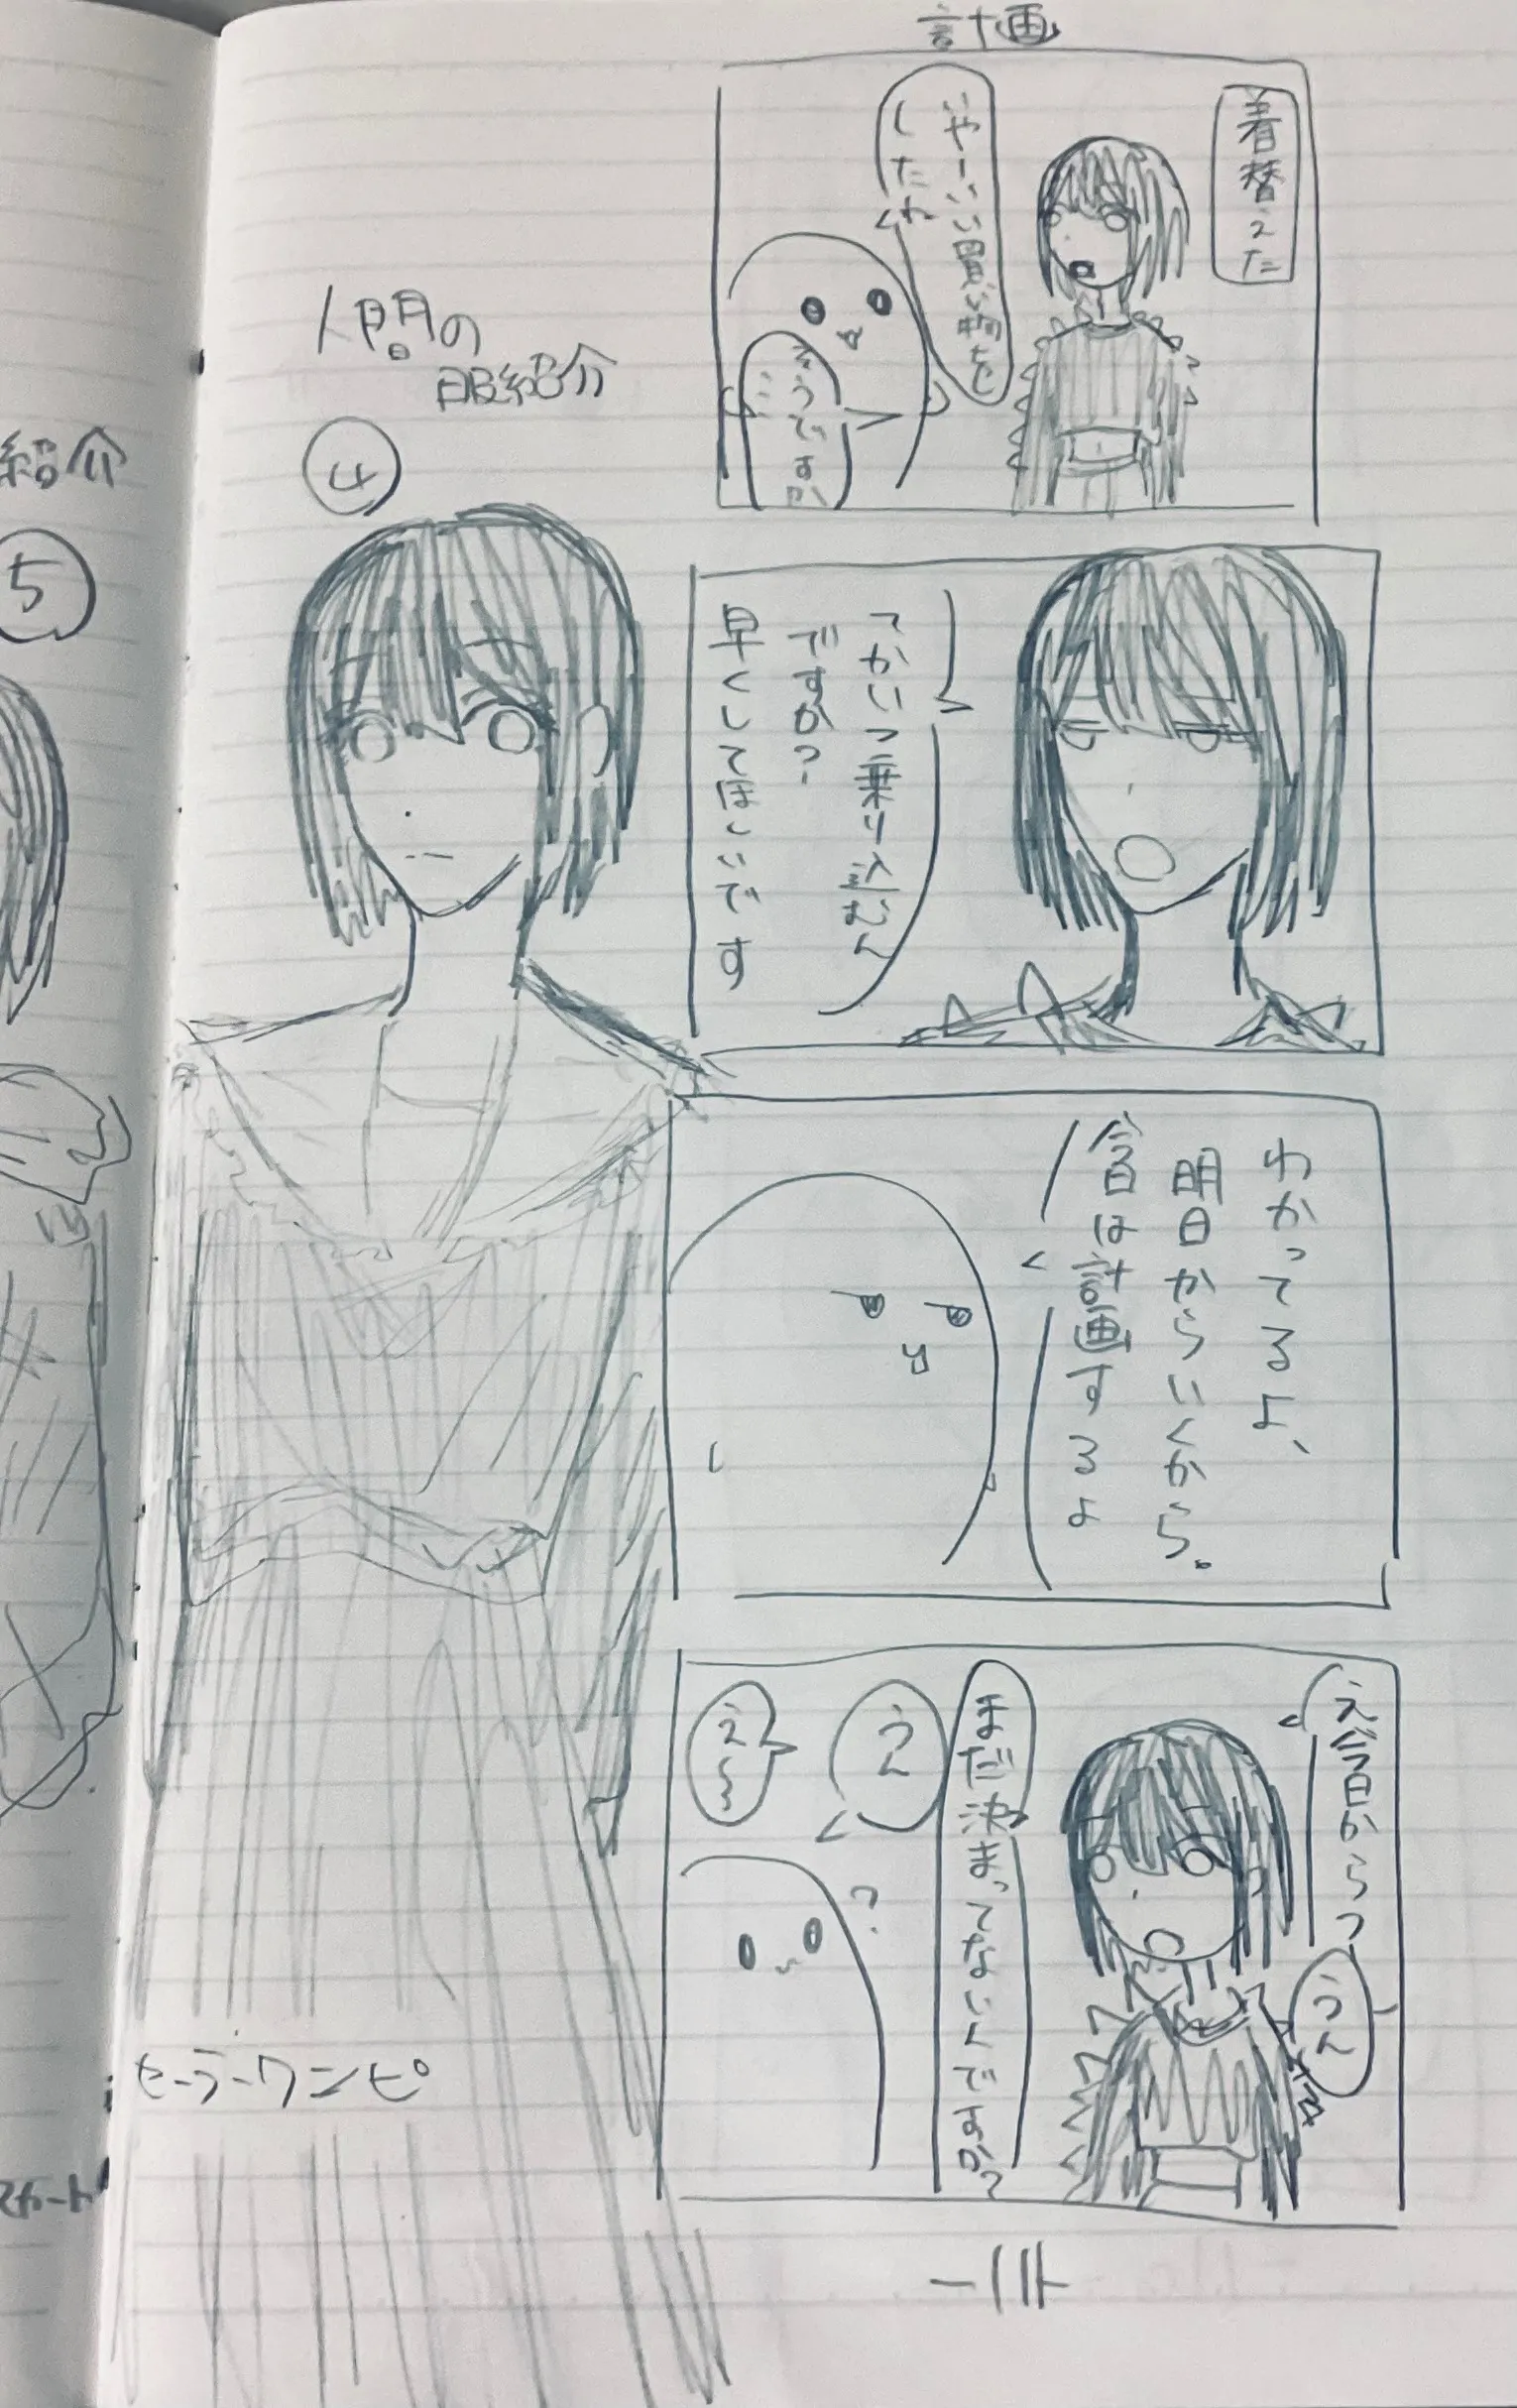 計画
着替えた
いやーいい買い物を
したわ
そうですか
てかいつ乗り込むん
ですか?
早くしてほしいです
わかってるよ、
明日からいくから。
今日は計画するよ
え今日からっ
うん
まだ決まってないんですか?
え
え〜
人間の
服紹介
④
セーラーワンピ
紹介
⑤
スカート